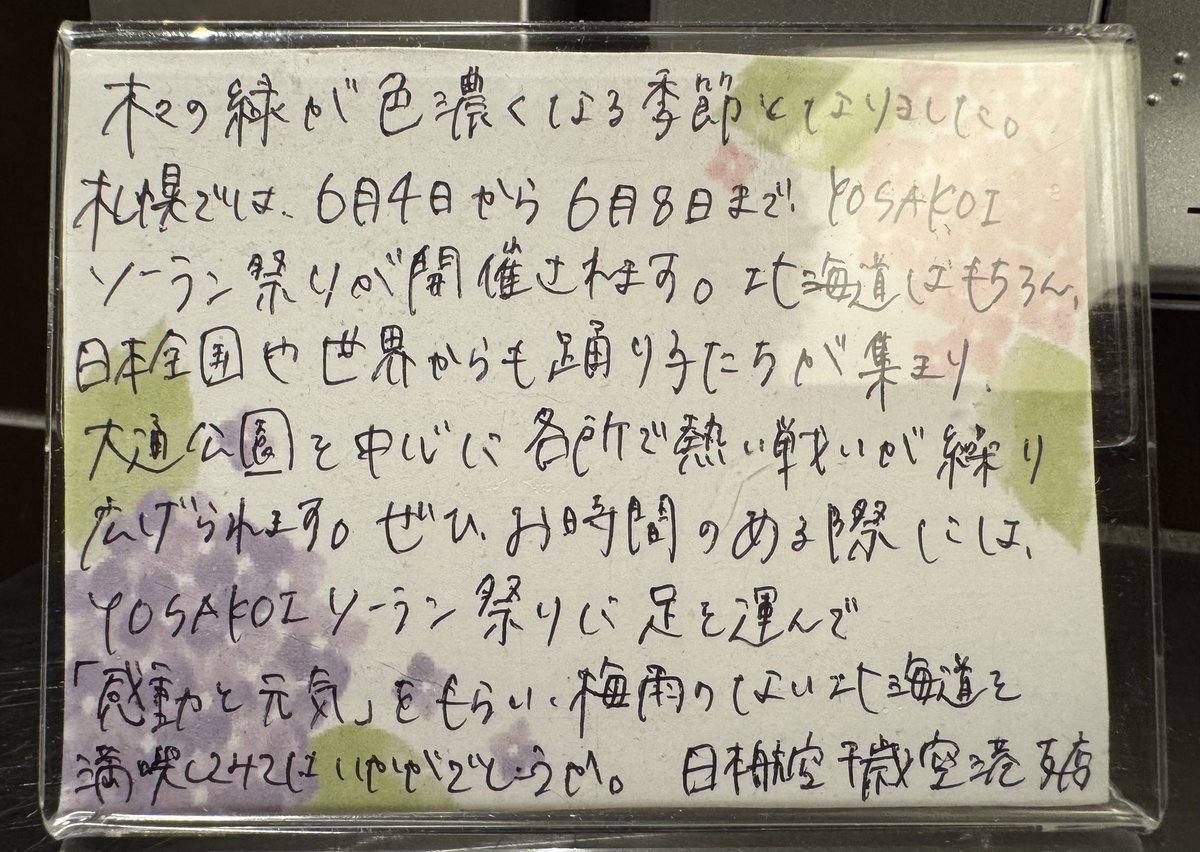 木々の緑が色濃くなる季節となりました。
札幌では、6月4日から6月8日まで、YOSAKOI
ソーラン祭りが開催されます。北海道はもちろん、
日本全国や世界からも踊り子たちが集まり、
大通公園を中心に各所で熱い戦いが繰り
広げられます。ぜひ、お時間のある際には、
YOSAKOIソーラン祭りに足を運んで
「感動と元気」をもらい、梅雨のない北海道を
満喫してみてはいかがでしょうか。 日本航空千歳空港支店